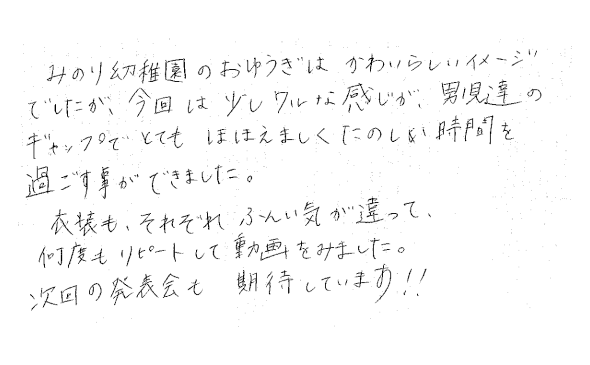 みのり幼稚園のおゆうぎは かわいらしいイメージ
でしたが、今回は少しワルな感じが、男児達の
ギャップでとても ほほえましくたのしい時間を
過ごす事ができました。
衣装も、それぞれ ふんい気が違って、
何度もリピートして動画をみました。
次回の発表会も 期待しています!!